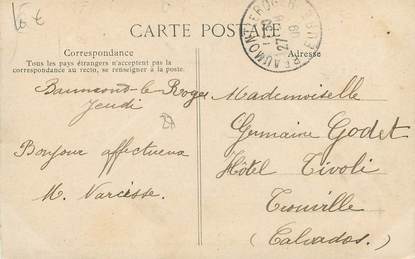 16 €
CARTE POSTALE
Correspondance
Tous les pays étrangers n'acceptent pas la
correspondance au recto, se renseigner à la poste.
Adresse
BEAUMONT
27
Beaumont-le-Roger
Jeudi
Bonjour affectueux
M. Narcisse.
Mademoiselle
Germaine Godet
Hôtel Tivoli
Trouville
(Calvados.)